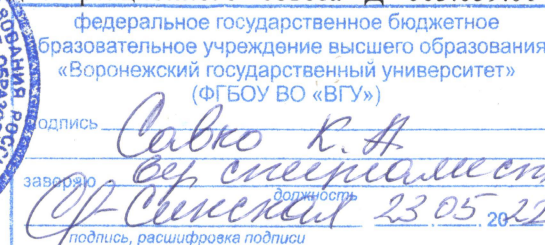 федеральное государственное бюджетное
образовательное учреждение высшего образования
«Воронежский государственный университет»
(ФГБОУ ВО «ВГУ»)
подпись Савко К. А
заверяю вед специалист
должность
Синская 23 05 2022
подпись, расшифровка подписи